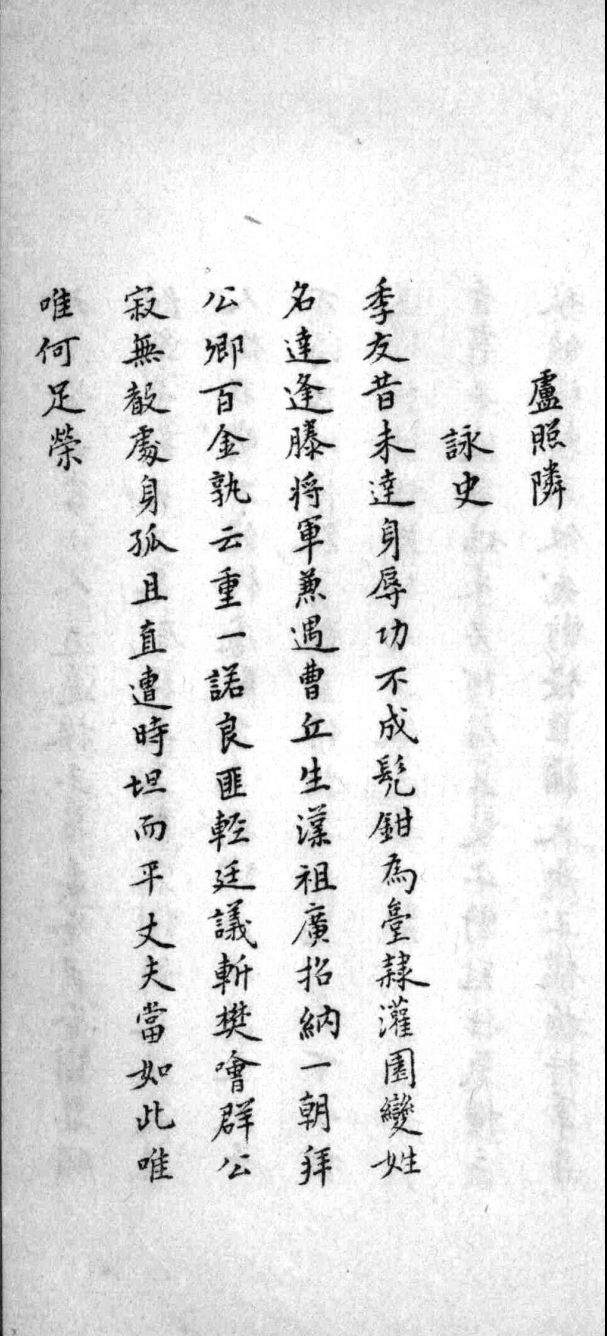 盧照隣
詠史
季友昔未達身辱功不成髡鉗為臺隸灌園變姓
名達逢滕将軍兼遇曹丘生漢祖廣招納一朝拜
公卿百金孰云重一諾良匪輕廷議斬樊噲群公
寂無聲處身孤且直遭時坦而平丈夫當如此唯
唯何足榮